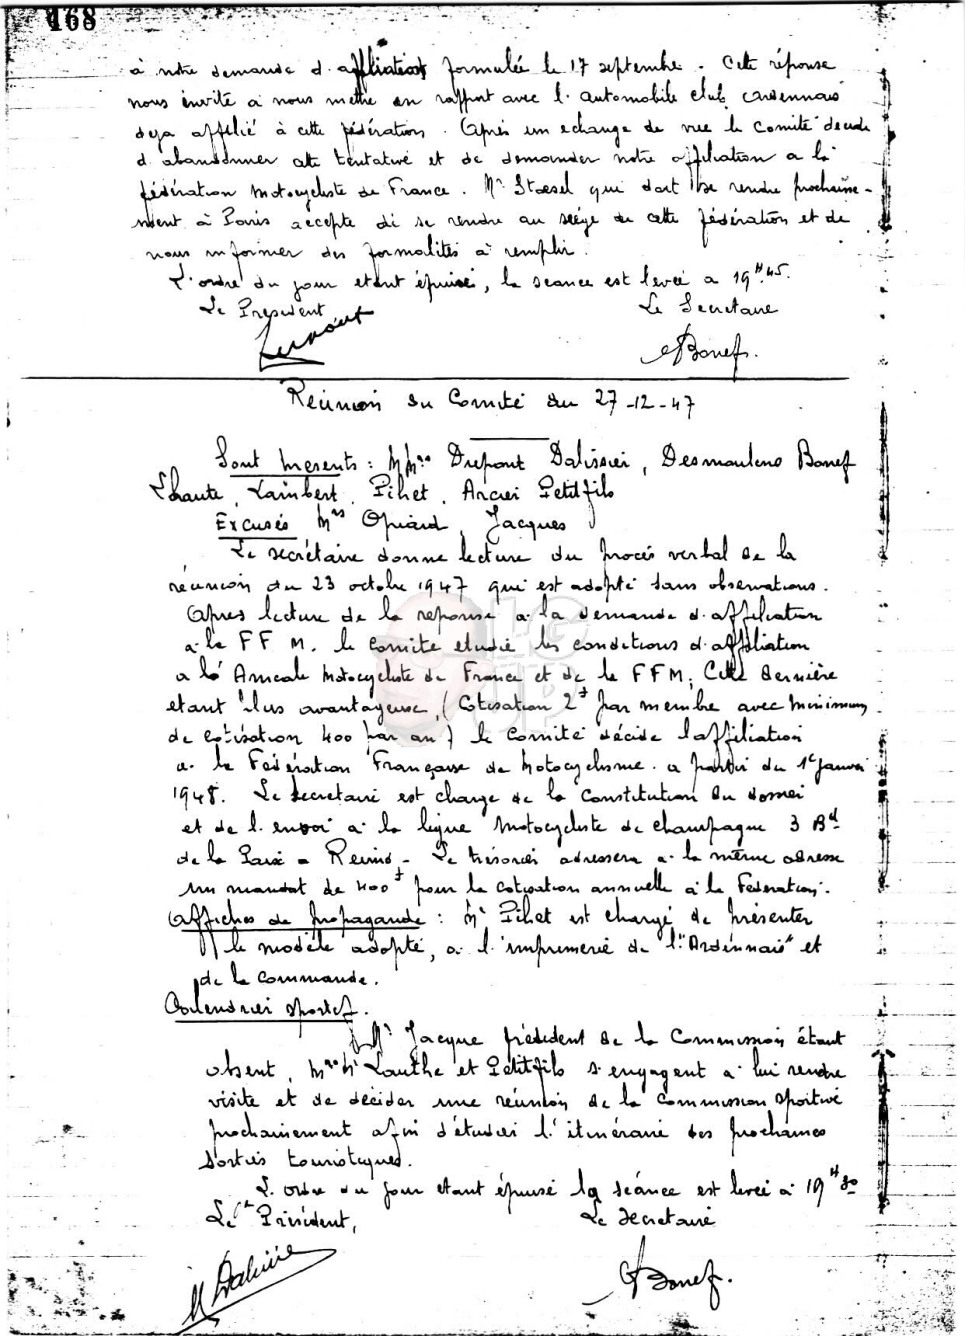 168
à notre demande d'affiliation formulée le 17 septembre. Cette réponse
nous invite a nous mettre en rapport avec l'automobile club ardennais
deja affilié à cette fédération. Après un echange de vue le Comité decide
d'abandonner cette tentative et de demander notre affiliation a la
fédération motocycliste de France. Mr Stoesel qui doit se rendre prochaine-
ment à Paris accepte de se rendre au siège de cette fédération et de
nous informer des formalités à remplir.
L'ordre du jour etant épuisé, la seance est levée a 19H45.
Le President Le Secretaire
Bonef.
Reunion du Comité du 27-12-47
Sont presents : MMrs Dupont Dalissier, Desmoulens Bonef
Lhaute, Lambert, Pihet, Ancier Petitfils
Excusés Mrs Opiard, Jacques
Le secrétaire donne lecture du procès verbal de la
réunion du 23 octobre 1947 qui est adopté sans observations.
Après lecture de la reponse a la demande d'affiliation
a la F F M. le comité etudie les conditions d'affiliation
a la Amicale Motocycliste de France et de la F F M; Cette dernière
etant plus avantageuse, (Cotisation 2f par membre avec minimum
de cotisation 400 par an) le Comité décide l'affiliation
a la Fédération Française de Motocyclisme a partir du 1er janvier
1948. Le secretaire est charge de la Constitution du dossier
et de l'envoi a la ligue Motocycliste de champagne 3 Bd
de la Paix a Reims - Le trésorier adressera a la même adresse
un mandat de 400f pour la cotisation annuelle à la Federation.
Affiches de propagande : Mr Pihet est chargé de présenter
le modèle adopté, a l'imprimerie de l'"Ardennais" et
de la commande.
Calendrier sportif.
Mr Jacque président de la Commission étant
absent, Mrs Lauthe et Petitfils s'engagent a lui rendre
visite et de décider une réunion de la Commission sportive
prochainement afin d'étudier l'itinéraire des prochaines
sorties touristiques.
L'ordre du jour etant épuisé la séance est levée à 19H30
Le Président, Le Secretaire
M Dalissier Bonef.
LG UP